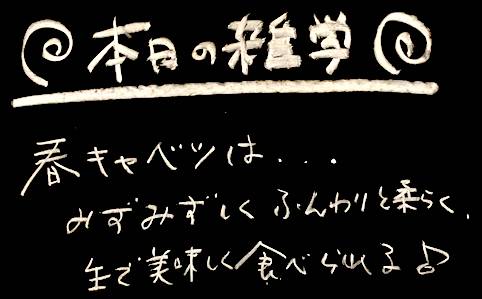 本日の雑学
春キャベツは...
みずみずしくふんわりと柔らく、
生で美味しく食べられる♪